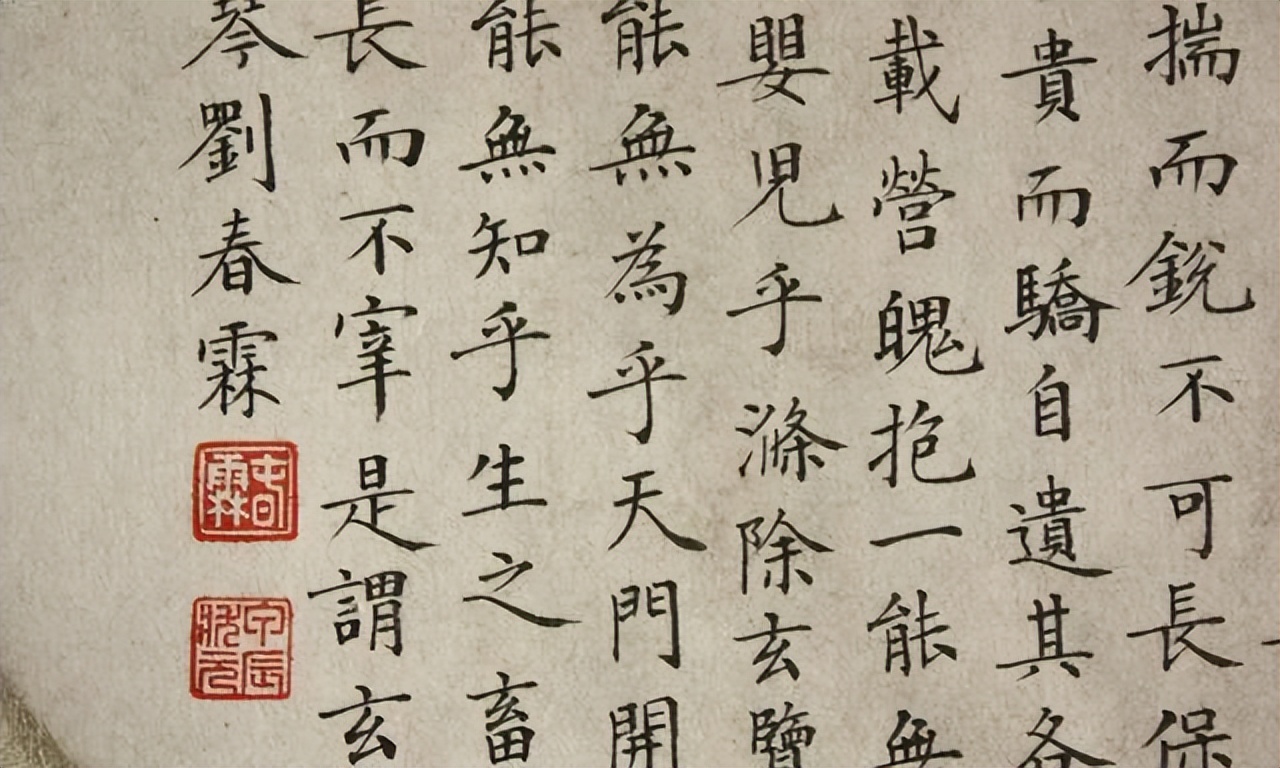 揣而銳不可長保
貴而驕自遺其咎
載營魄抱一能無
嬰兒乎滌除玄覽
能無為乎天門開
能無知乎生之畜
長而不宰是謂玄
琴劉春霖
春霖
甲辰狀元